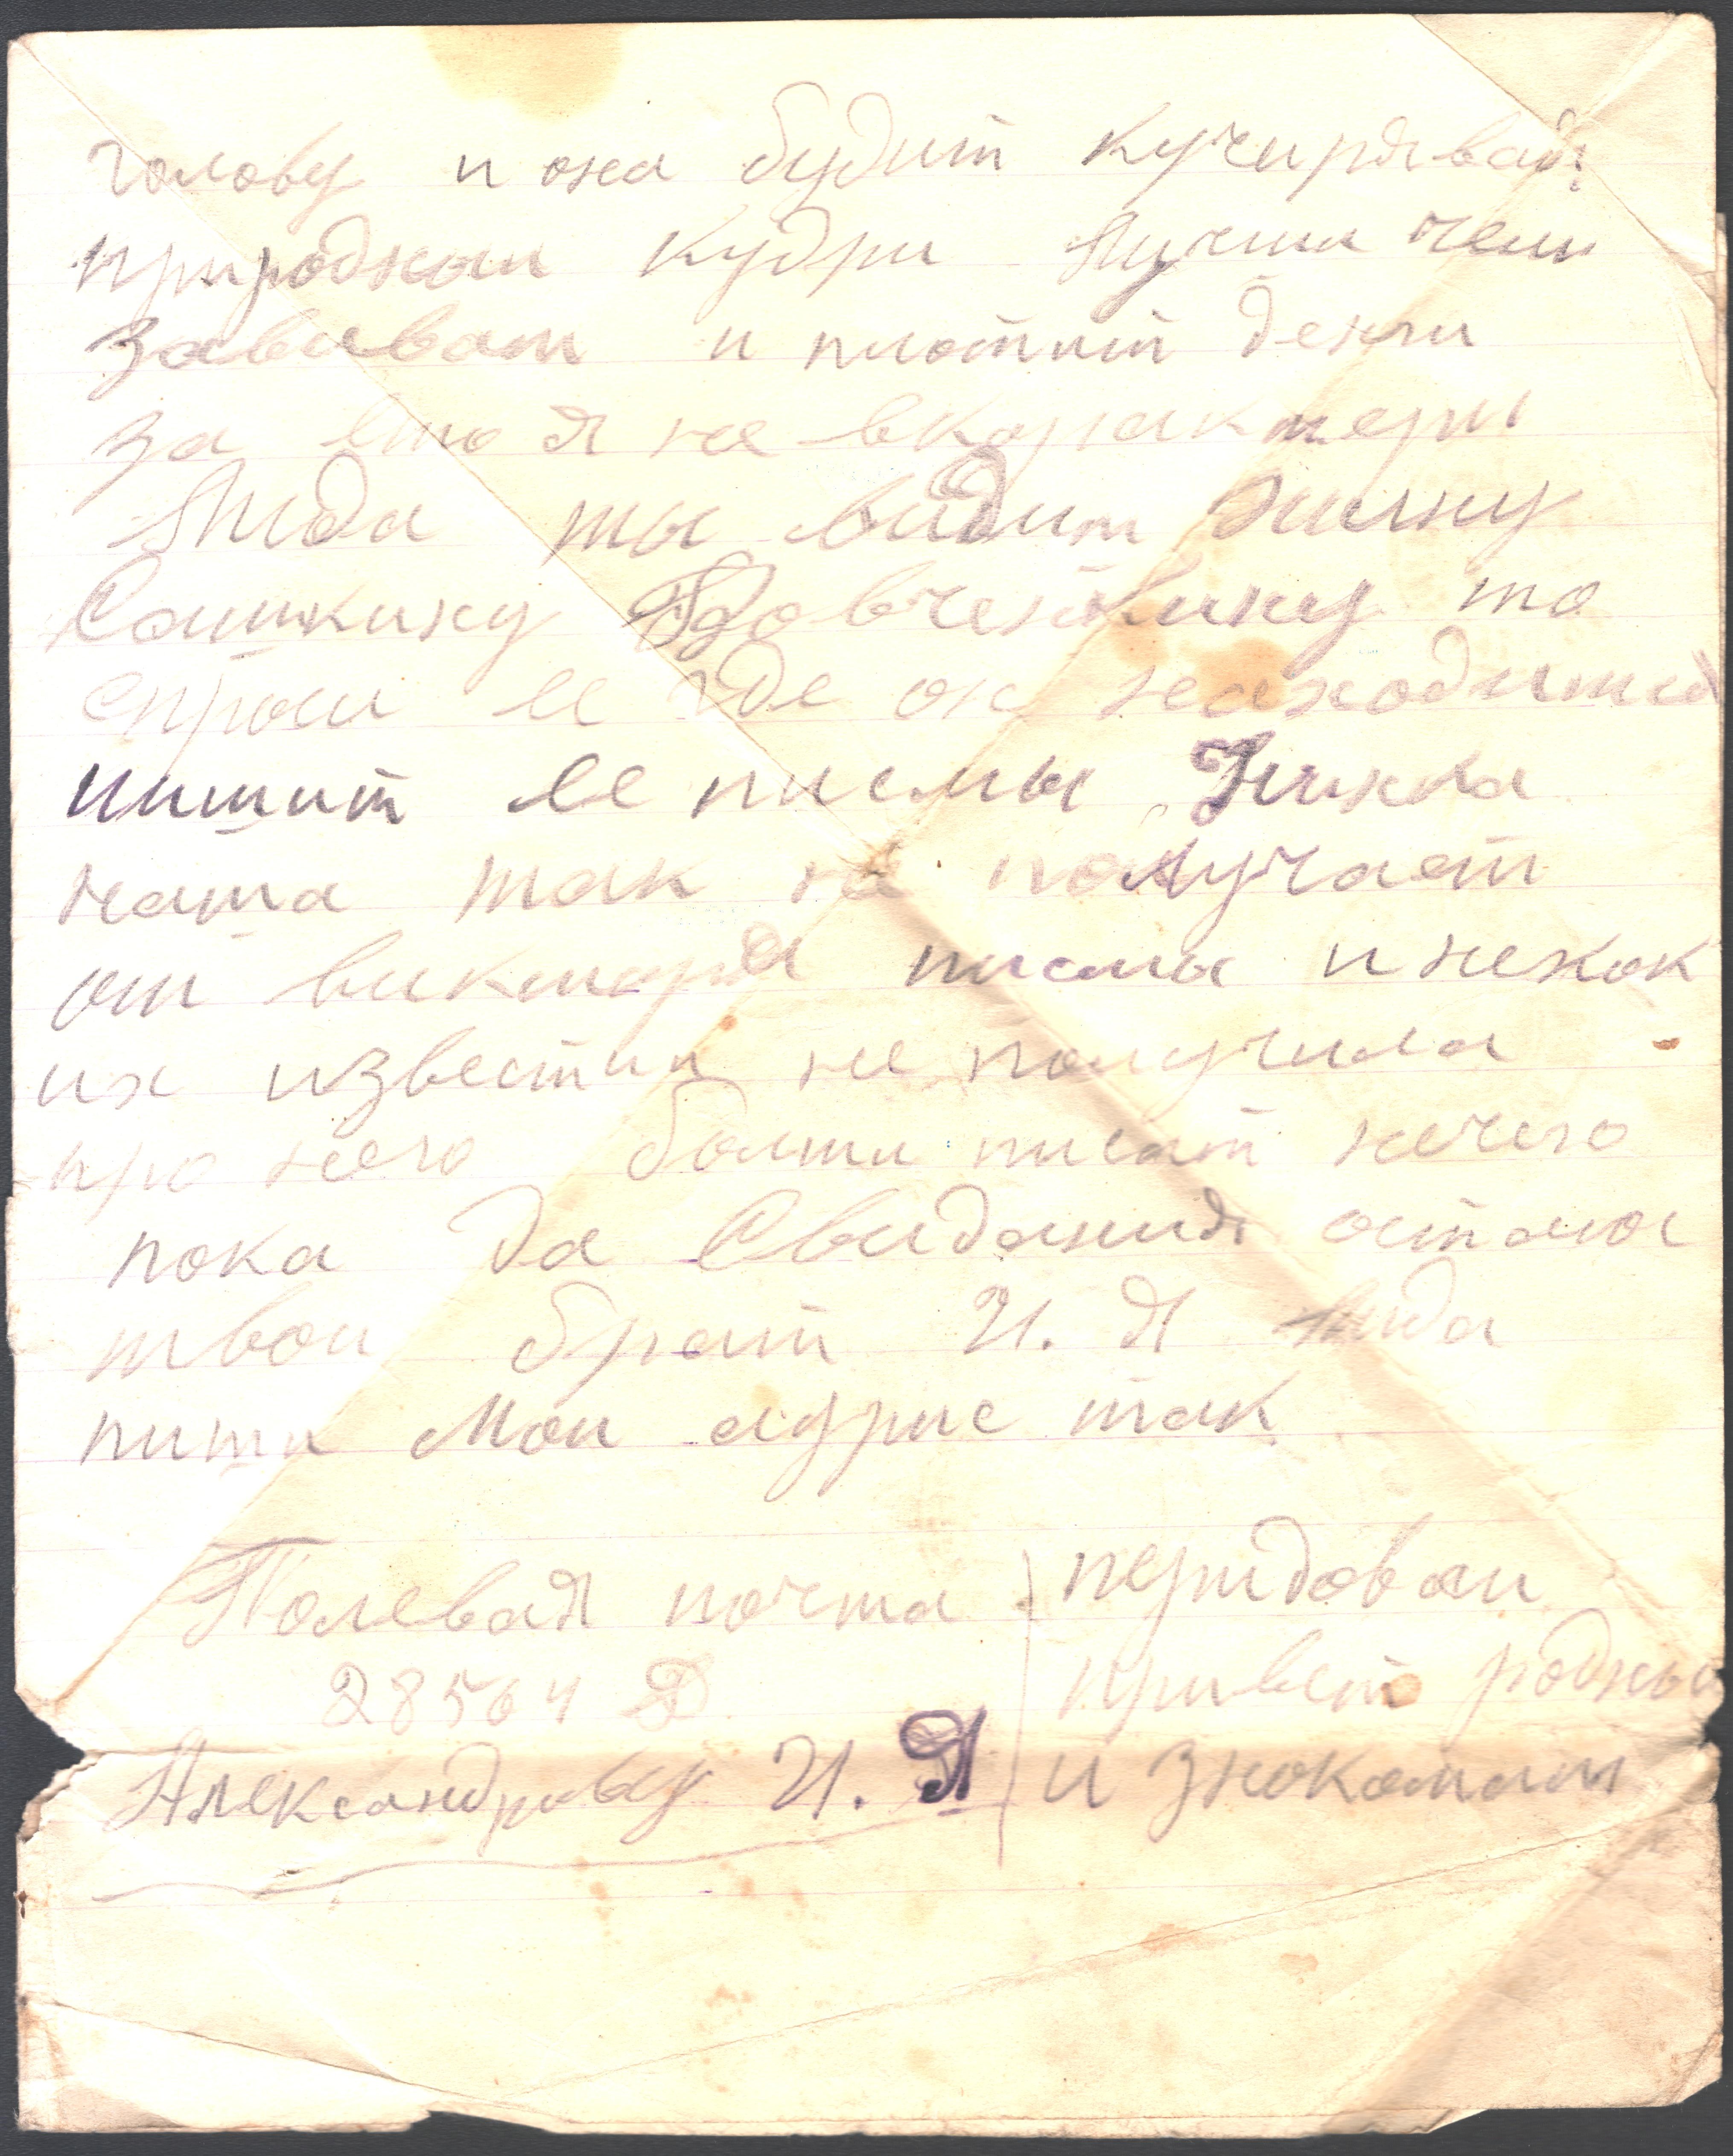 голову и она будит кучирявая
природнои кудри лучши чем
завиват и платит денги
за ето я не вкарактери
Лида ты видиш Зинку
Сашкину то
спроси ее где он находится
пишит ее писмы Нинка
наша так не получает
от виктара писмы и некак
их извести не получила
про него болши писат нечего
пока да Свидания остаюс
твои брат И. Я Лида
пиши мои адрис так
Полевая почта
28564 Д
Александрову И. Я
перидоваи
привет родным
и знокомым